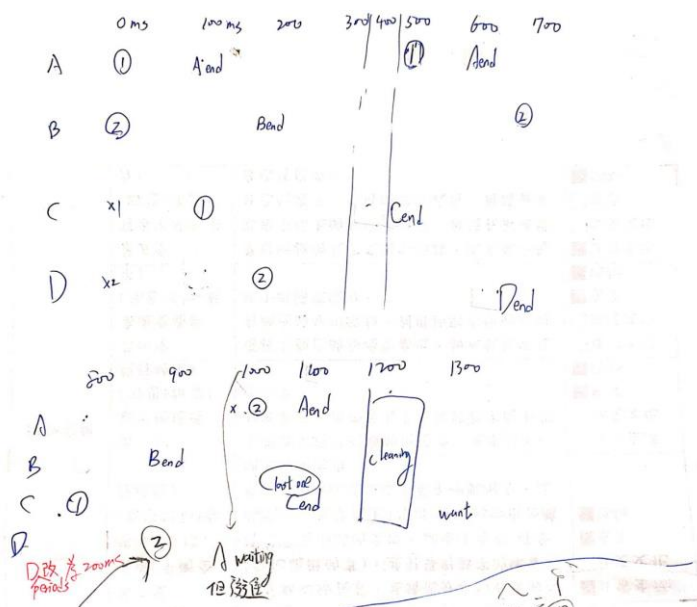 0 ms 100 ms 200 300 400 500 600 700
A ① A end ① Aend
B ② Bend ②
C x1 ① Cend
D x2 ② Dend
800 900 1000 1100 1200 1300
A x ② Aend
B Bend cleaning
C ① last one Cend want
D
D改為200ms
period
②
A waiting